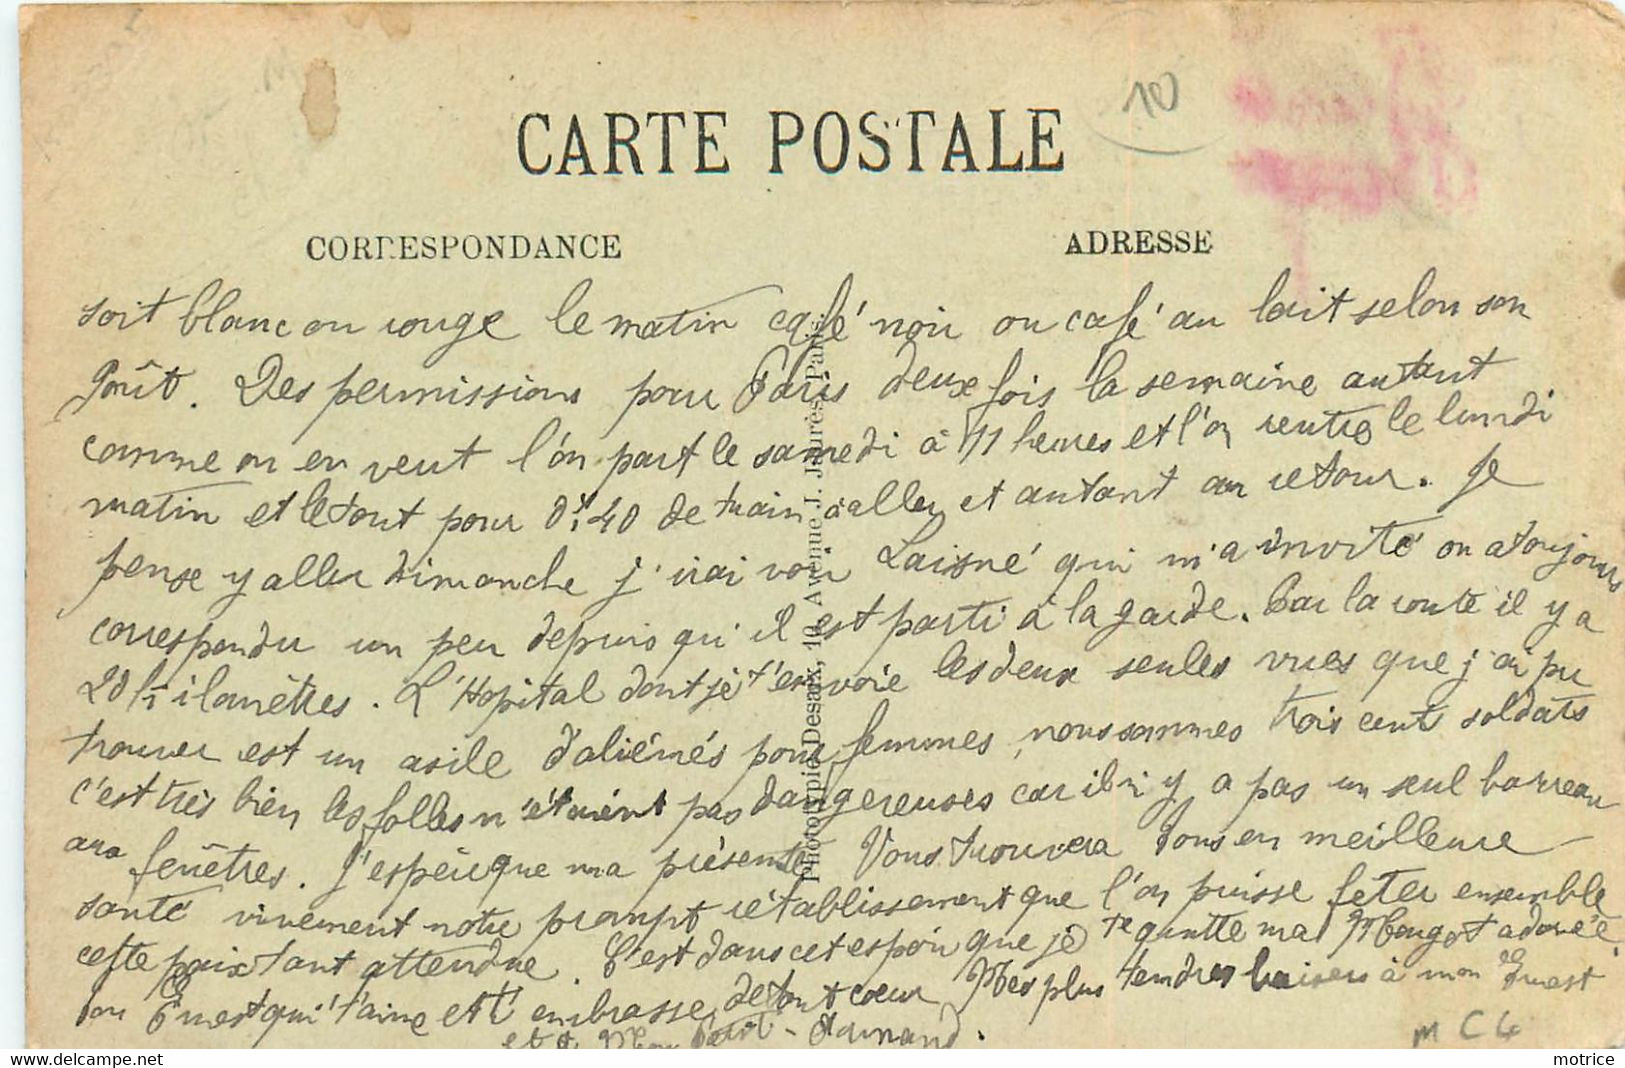 10
CARTE POSTALE
CORRESPONDANCE
ADRESSE
soit blanc ou rouge le matin café noir ou café au lait selon son
goût. Des permissions pour Paris deux fois la semaine autant
comme on en veut l'on part le samedi à 11 heures et l'on rentre le lundi
matin et le tout pour 0f,40 de train à aller et autant au retour. Je
pense y aller dimanche j'irai voir Laisné qui m'a invité on a toujours
correspondu un peu depuis qu'il est parti à la garde. Par la route il y a
20 kilomètres. L'Hopital dont je t'envoie les deux seules vues que j'ai pu
trouver est un asile d'aliénés pour femmes, nous sommes trois cent soldats
c'est très bien les folles n'étaient pas dangereuses car il n'y a pas un seul barreau
aux fenêtres. J'espère que ma présente Vous trouvera tous en meilleure
santé vivement notre prompt rétablissement que l'on puisse feter ensemble
cette paix tant attendue. C'est dans cet espoir que je te quitte ma Margot adorée.
ton Ernest qui t'aime et t'embrasse de tout coeur Mes plus tendres baisers à mon Ernest
et à Mon
Phototypie Desaix, 10, Avenue J. Jaurès, Paris.
M C 4
www.delcampe.net
motrice